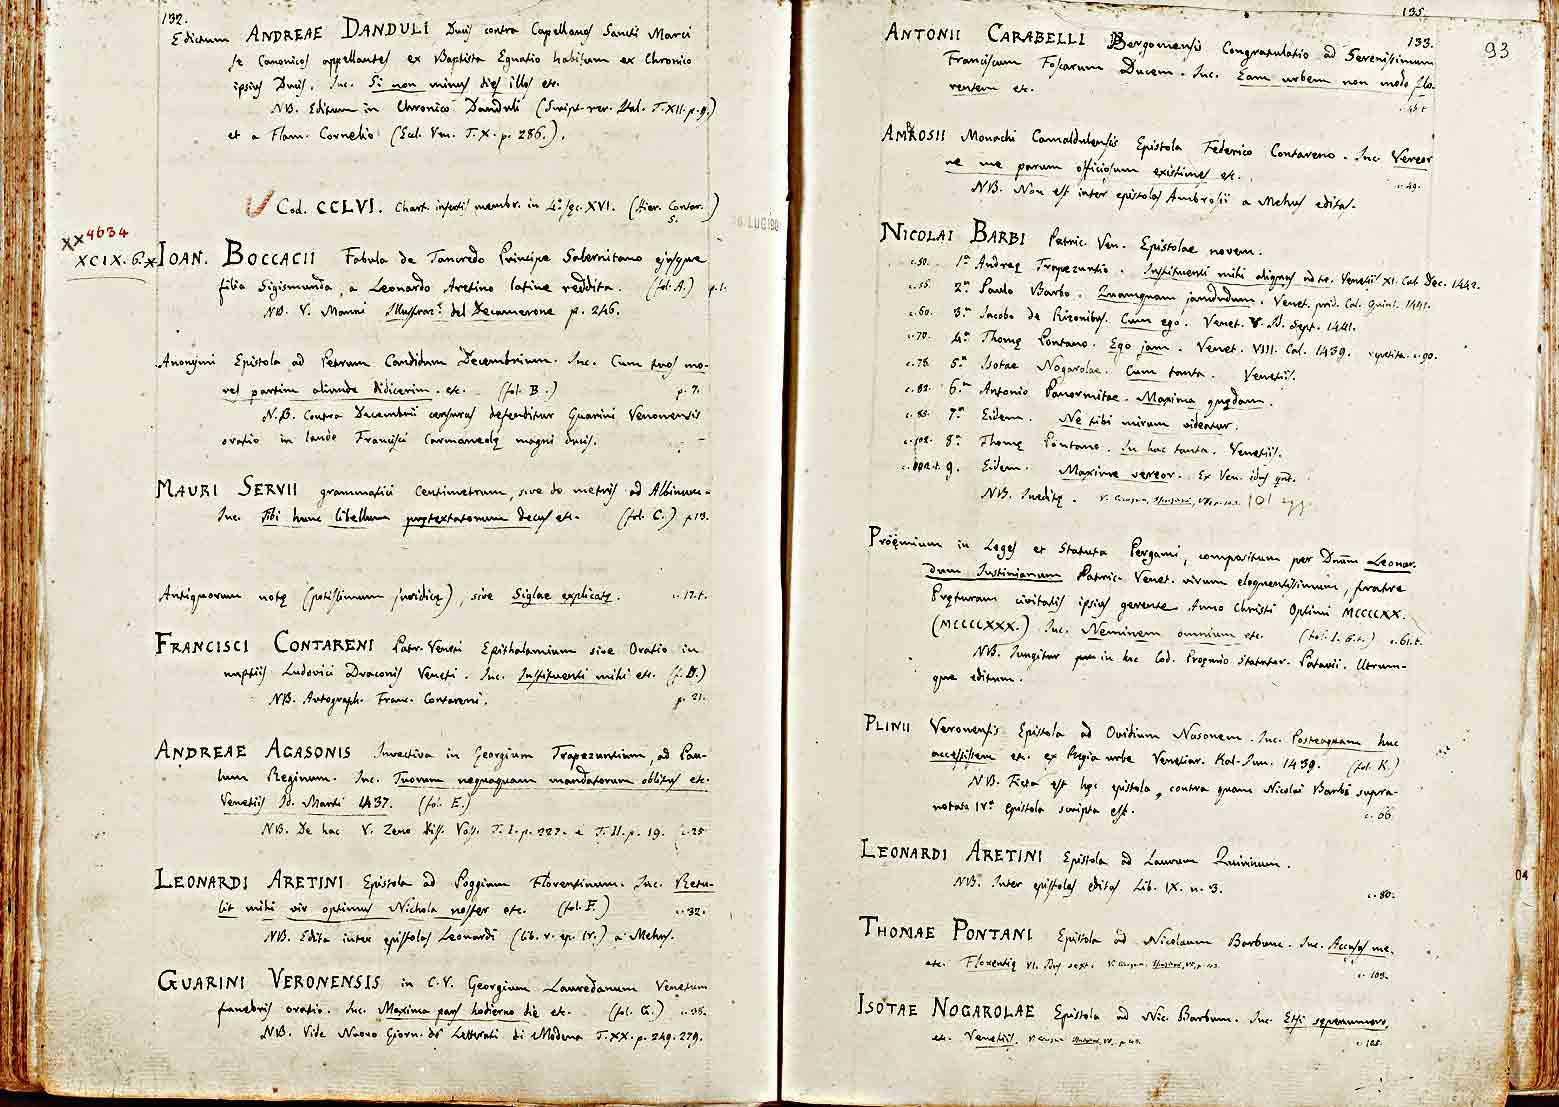 132.
Edictum ANDREAE DANDULI Ducis contra Capellanos Sancti Marci
se Canonicos appellantes ex Baptista Egnatio habitum ex Chronico
ipsius Ducis. Inc. Si non minus dies illos etc.
NB. Editum in Chronico Danduli (Script. rer. Ital. T. XII. p. 9.)
et a Flam. Cornelio (Eccl. Ven. T. X. p. 286.).
Cod. CCLVI. Chart. insertis membr. in 4º. sęc. XVI. (Hier. Contar.)
5.
XX 4634
XCIX. 6. x IOAN. BOCCACII Fabula de Tancredo Principe Salernitano ejusque
filia Sigismunda, a Leonardo Aretino latine reddita. (fol. A.) p. 1.
NB. V. Manni Illustraz.e del Decamerone p. 246.
Anonymi Epistola ad Petrum Candidum Decembrium. Inc. Cum tuos no-
vel partim aliunde didicerim. etc. (fol. B.) p. 7.
N.B. Contra Decembrii censuras defenditur Guarini Veronensis
oratio in laude Francisci Carmaneolę magni ducis.
MAURI SERVII grammatici Centimetrum, sive de metris ad Albinum.
Inc. Tibi hunc libellum prętextatorum decus etc. (fol. C.) p. 13.
Antiquorum notę (potissimum juridicę), sive Siglae explicatę. c. 17. t.
FRANCISCI CONTARENI Patr. Veneti Epithalamium sive Oratio in
nuptiis Ludovici Draconis Veneti. Inc. Instituenti mihi etc. (f. D.)
NB. Autograph. Franc. Contareni. p. 21.
ANDREAE AGASONIS Invectiva in Georgium Trapezuntium, ad Pau-
lum Reginum. Inc. Tuorum nequaquam mandatorum oblitus etc.
Venetiis Id. Marti 1437. (fol. E.)
NB. De hac V. Zeno Diss. Voss. T. I. p. 227. e T. II. p. 19. c. 25
LEONARDI ARETINI Epistola ad Poggium Florentinum. Inc. Retu-
lit mihi vir optimus Nichola noster etc. (fol. F.) c. 32.
NB. Edita inter epistolas Leonardi (lib. V. ep. IV.) a Mehus.
GUARINI VERONENSIS in C. V. Georgium Lauredanum Venetum
funebris oratio. Inc. Maxima pars hodierno die etc. (fol. G.) c. 38.
NB. Vide Nuovo Giorn. de' Letterati di Modena T. XX. p. 249. 279.
135.
133.
93
ANTONII CARABELLI Bergomensis Congratulatio ad Serenissimum
Franciscum Foscarum Ducem. Inc. Eam urbem non modo flo-
rentem etc.
AMBROSII Monachi Camaldulensis Epistola Federico Contareno. Inc. Vereor
ne me parum officiosum existimes etc. c. 49.
NB. Non est inter epistolas Ambrosii a Mehus editas.
NICOLAI BARBI Patric. Ven. Epistolae novem.
c. 50. 1a Andreę Trapezuntio. Instituenti mihi aliquas ad te. Venetiis XI. Cal. Dec. 1442.
c. 55. 2a Paulo Barbo. Quamquam jamdudum. Venet. prid. Cal. Quint. 1441.
c. 60. 3a Jacobo de Rizonibus. Cum ego. Venet. V. Id. Sept. 1441.
c. 70. 4a Thomę Pontano. Ego jam. Venet. VIII. Cal. 1439. repetita c. 90.
c. 78. 5a Isotae Nogarolae. Cum tanta. Venetiis.
c. 82. 6a Antonio Panormitae. Maxima quędam.
c. 85. 7a Eidem. Ne tibi mirum videatur.
c. 102. 8a Thomę Pontano. In hac tanta. Venetiis.
c. 102. t. 9. Eidem. Maxime vereor. Ex Ven. idus
NB. Ineditę.
Proęmium in Leges et Statuta Pergami, compositum per Dnum Leonar-
dum Iustinianum Patric. Venet. virum eloquentissimum, fratre
Pręturam civitatis ipsius gerente Anno Christi Optimi MCCCCXX.
(MCCCCXXX.) Inc. Neminem omnium etc. (fol. I. 6. t.) c. 61. t.
NB. Jungitur in hac Cod. Proęmio Statutor. Patavii. Utrum-
que editum.
PLINII Veronensis Epistola ad Ovidium Nasonem. Inc. Posteaquam huc
accessissem etc. ex Regia urbe Venetiar. Kal. Jun. 1439. (fol. K.)
NB. Ficta est hęc epistola, contra quam Nicolai Barbi supra-
notata IV.a epistola scripta est. c. 66.
LEONARDI ARETINI Epistola ad Laurum Quirinum.
NB. Inter epistolas editas Lib. IX. n. 3. c. 80.
THOMAE PONTANI Epistola ad Nicolaum Barbum. Inc. Accusas me.
etc. Florentię VI. Idus sext. c. 103.
ISOTAE NOGAROLAE Epistola ad Nic. Barbum. Inc. Etsi sępenumero,
etc. Venetiis. c. 105.
04